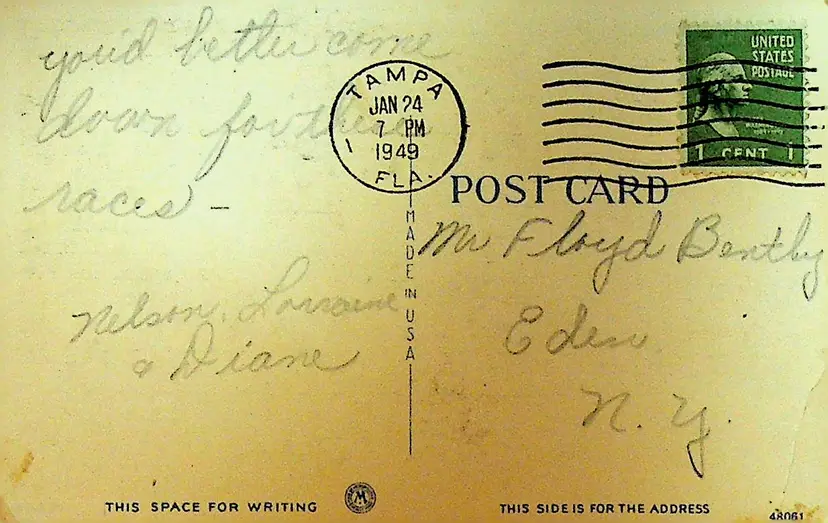 you'd better come
down for these
races –
Nelson, Lorraine
& Diane
TAMPA
JAN 24
7 PM
1949
1
FLA.
UNITED
STATES
POSTAGE
1 CENT 1
POST CARD
MADE IN USA
Mr Floyd Bentley
Eden
N. Y.
THIS SPACE FOR WRITING
M
THIS SIDE IS FOR THE ADDRESS
48061